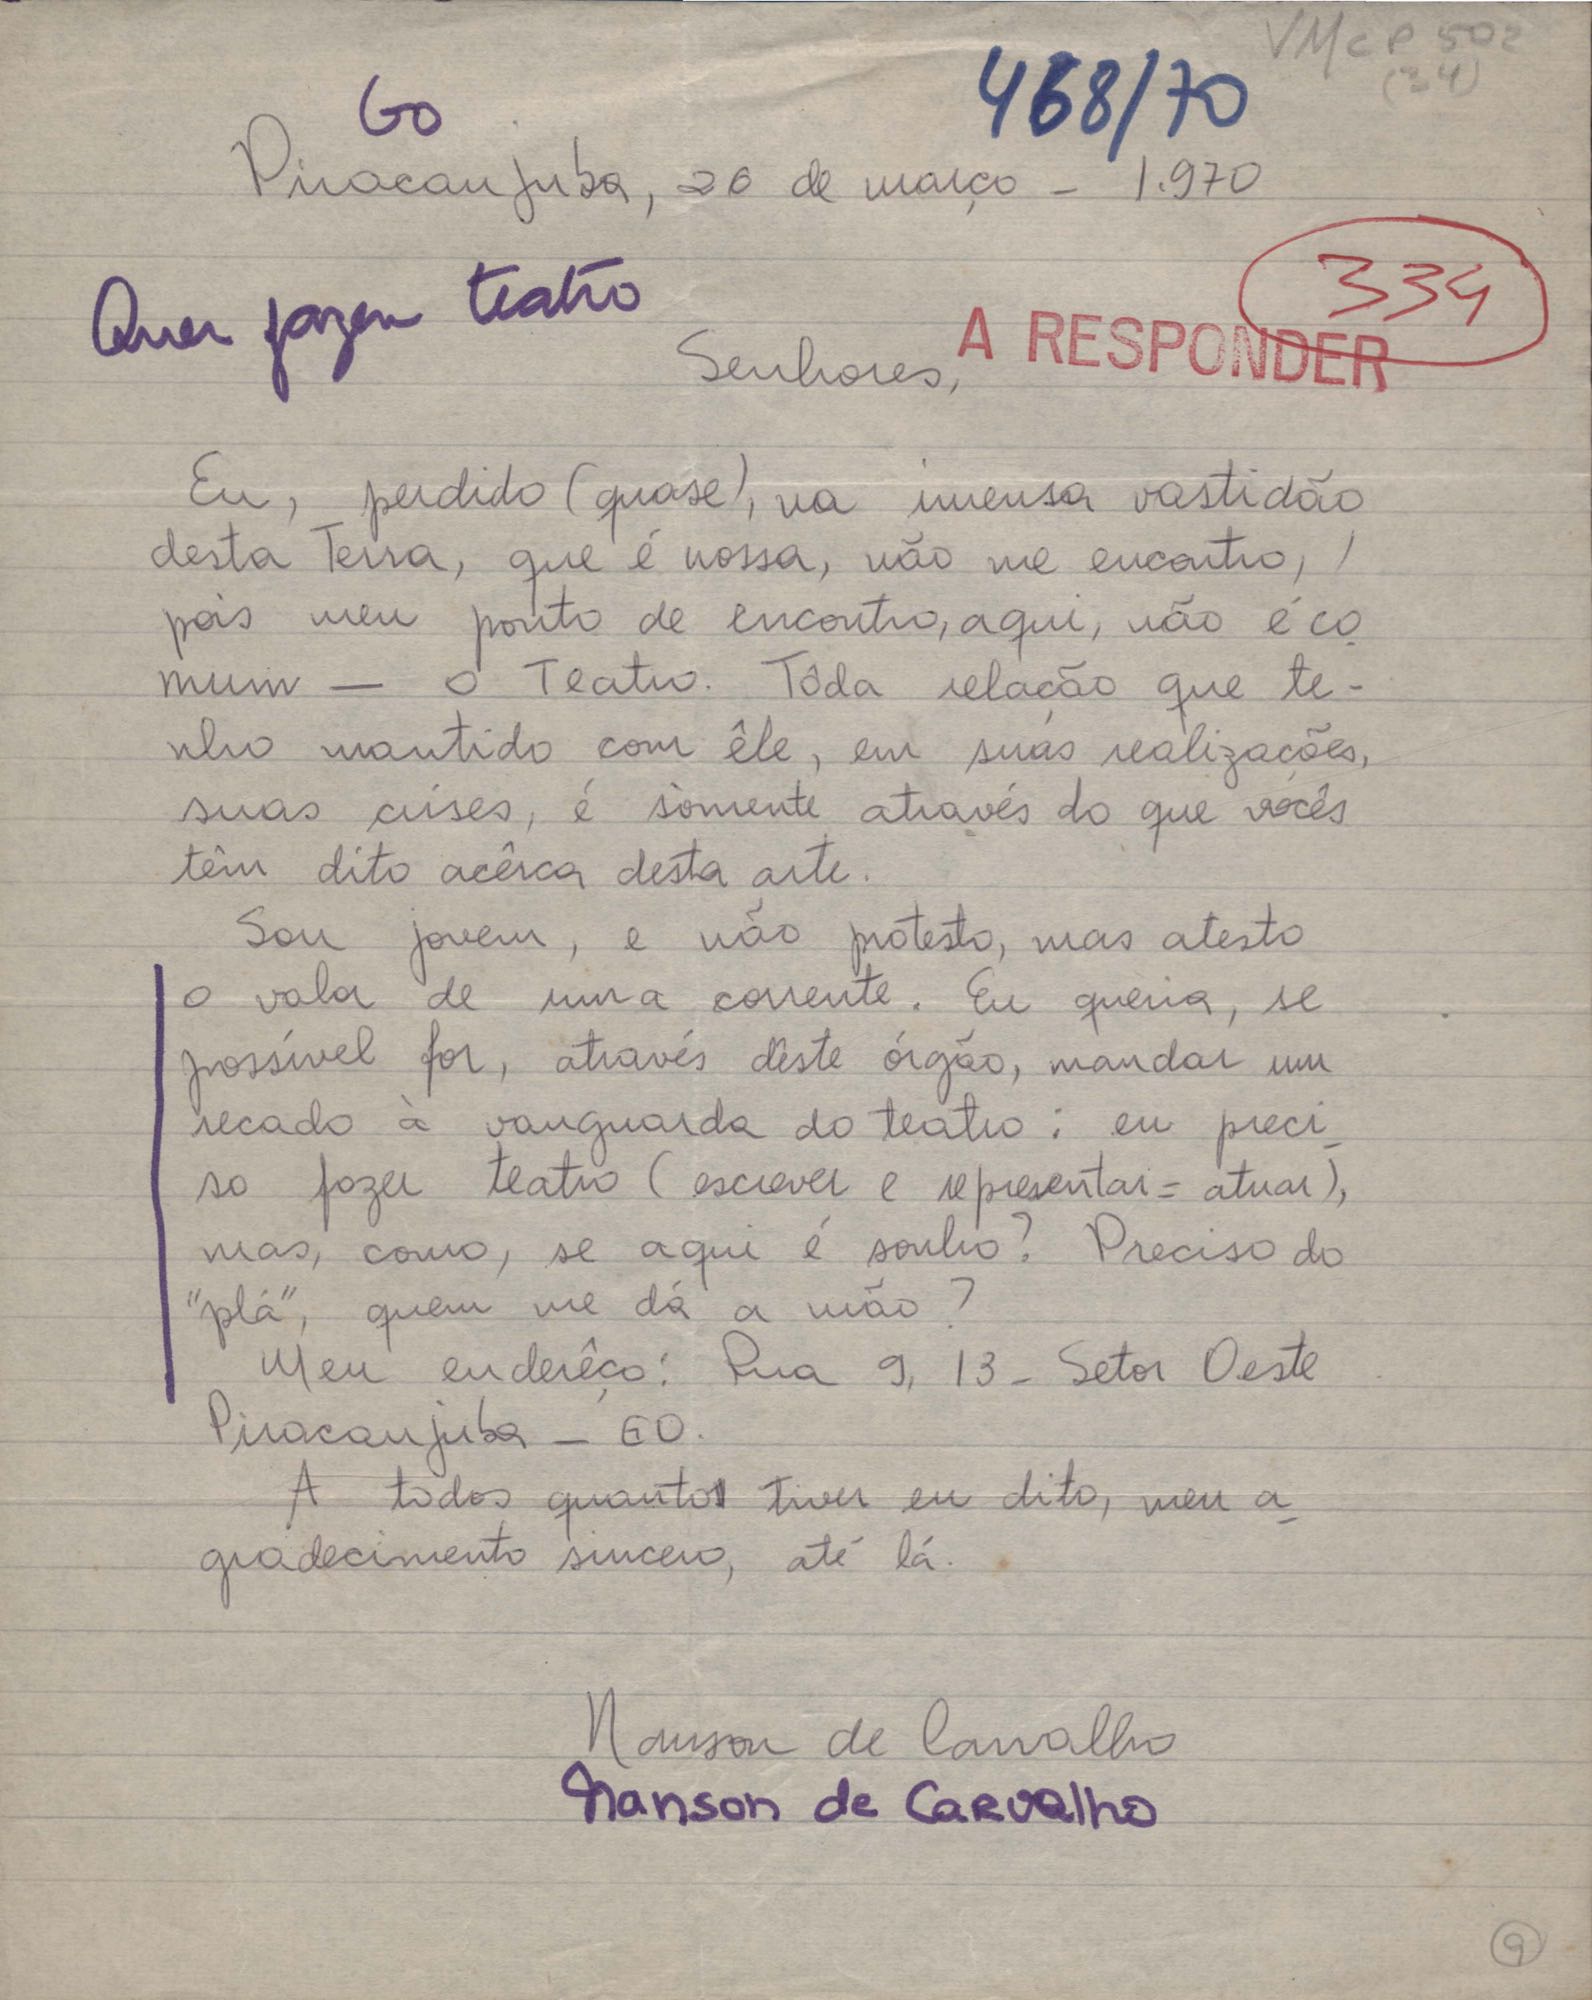 VMcP 502
(34)
Go
468/70
Piracanjuba, 26 de março - 1.970
334
Quer fazer teatro
A RESPONDER
Senhores,
Eu, perdido (quase), na imensa vastidão
desta Terra, que é nossa, não me encontro, /
pois meu ponto de encontro, aqui, não é co
mum — o Teatro. Tôda relação que te-
nho mantido com êle, em suas realizações,
suas crises, é sòmente através do que vocês
têm dito acêrca desta arte.
Sou jovem, e não protesto, mas atesto
o valor de uma corrente. Eu queria, se
possível for, através dêste órgão, mandar um
recado à vanguarda do teatro: eu preci-
so fazer teatro (escrever e representar = atuar),
mas, como, se aqui é sonho? Preciso do
"plá", quem me dá a mão?
Meu enderêço: Rua 9, 13 - Setor Oeste
Piracanjuba - GO.
A todos quantos tiver eu dito, meu a-
gradecimento sincero, até lá.
Nanson de Carvalho
Nanson de Carvalho
9